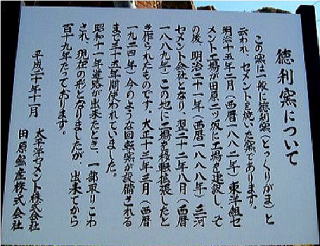 徳利窯について
この窯は一般に徳利窯(とっくりがま)と
云われ、セメントを焼いた窯であります。
明治十五年二月(西暦一八八二年)東洋組セ
メント工場が田原三ツ坂に工場を建設し、そ
の後、明治二十一年(西暦一八八八年)三河
セメント会社となり、翌二十二年八月(西暦
一八八九年)この地に工場を移転拡張したと
き造られたものです。大正十三年三月(西暦
一九二四年)今のような回転窯が設備される
まで三十五年間使われていました。
昭和十一年道路が出来たとき、一部取りこわ
され、現在の形となりましたが、出来てから
百十九年たっております。
平成二十年十一月
太平洋セメント株式会社
田原鉱産株式会社